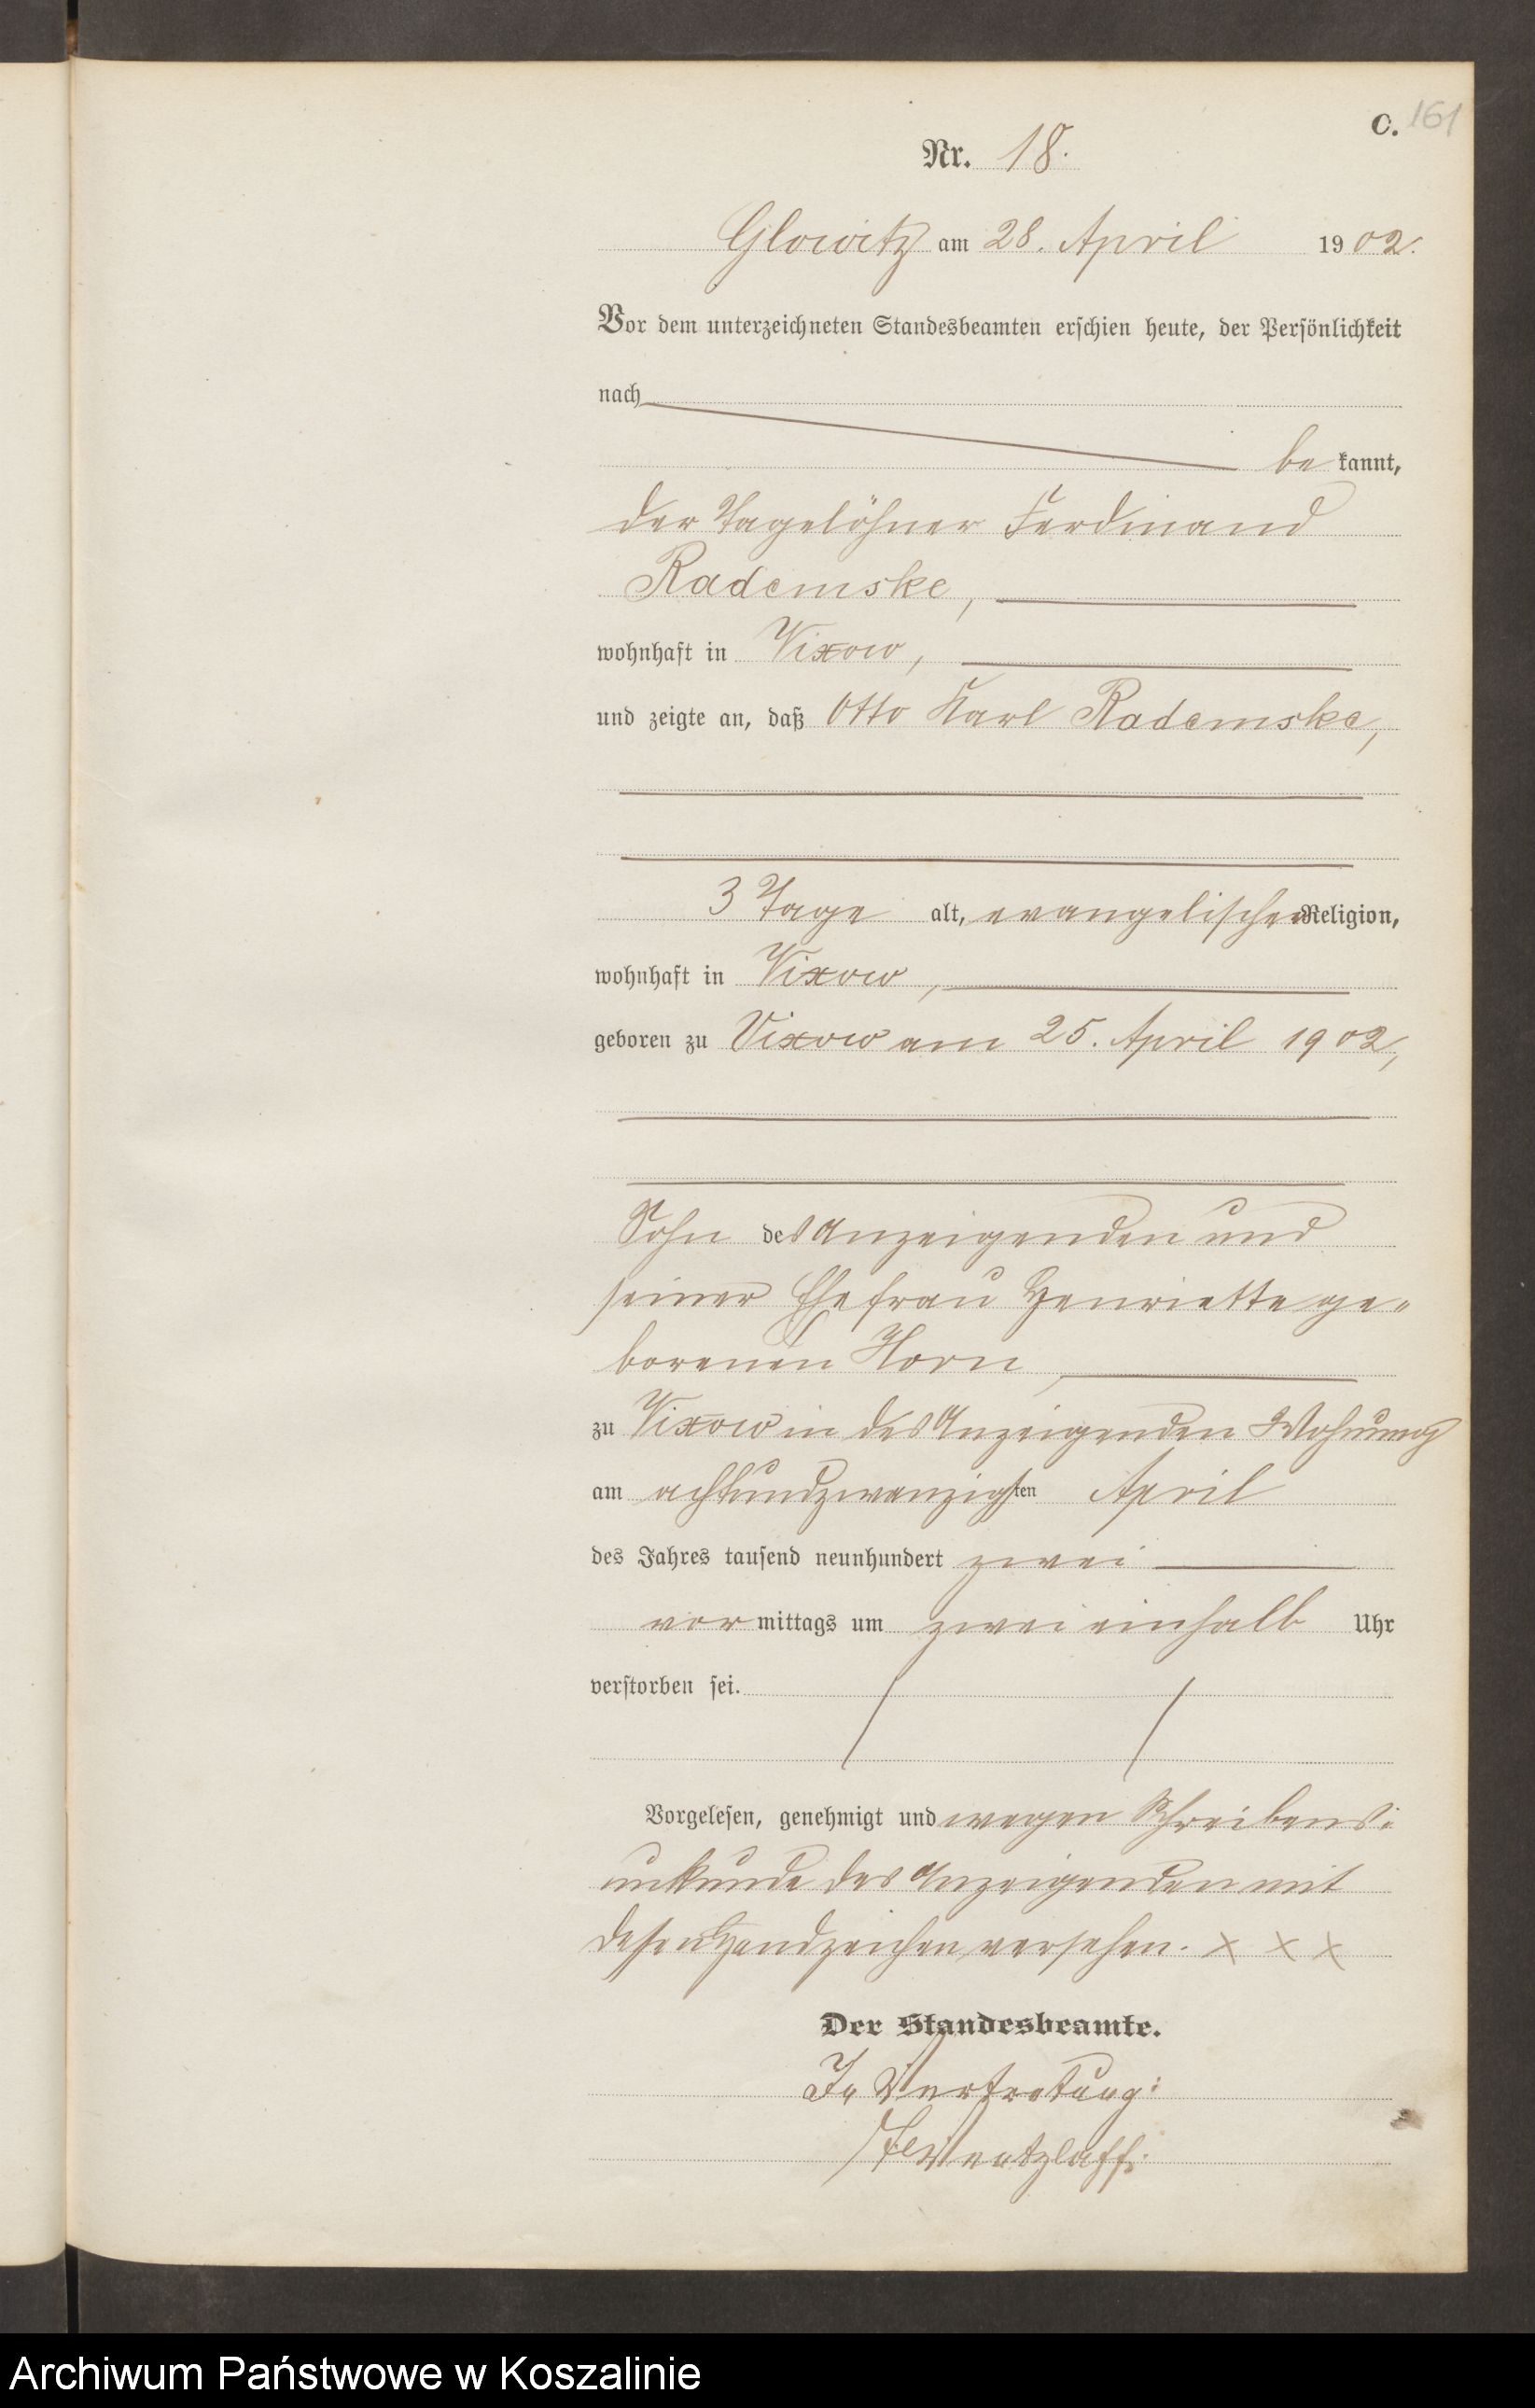 C. 161
Nr. 18.
Glowitz am 28. April 1902.
Vor dem unterzeichneten Standesbeamten erschien heute, der Persönlichkeit
nach
be kannt,
der Tagelöhner Ferdinand
Rademske,
wohnhaft in Vixow,
und zeigte an, daß Otto Karl Rademske,
3 Tage alt, evangelischer Religion,
wohnhaft in Vixow,
geboren zu Vixow am 25. April 1902,
Sohn des Anzeigenden und
seiner Ehefrau Henriette ge-
borenen Horn,
zu Vixow in des Anzeigenden Wohnung
am achtundzwanzigsten April
des Jahres tausend neunhundert zwei
vor mittags um zwei einhalb Uhr
verstorben sei.
Vorgelesen, genehmigt und wegen Schreibens-
unkunde des Anzeigenden mit
dessen Handzeichen versehen. x x x
Der Standesbeamte.
In Vertretung:
Wentzlaff.
Archiwum Państwowe w Koszalinie